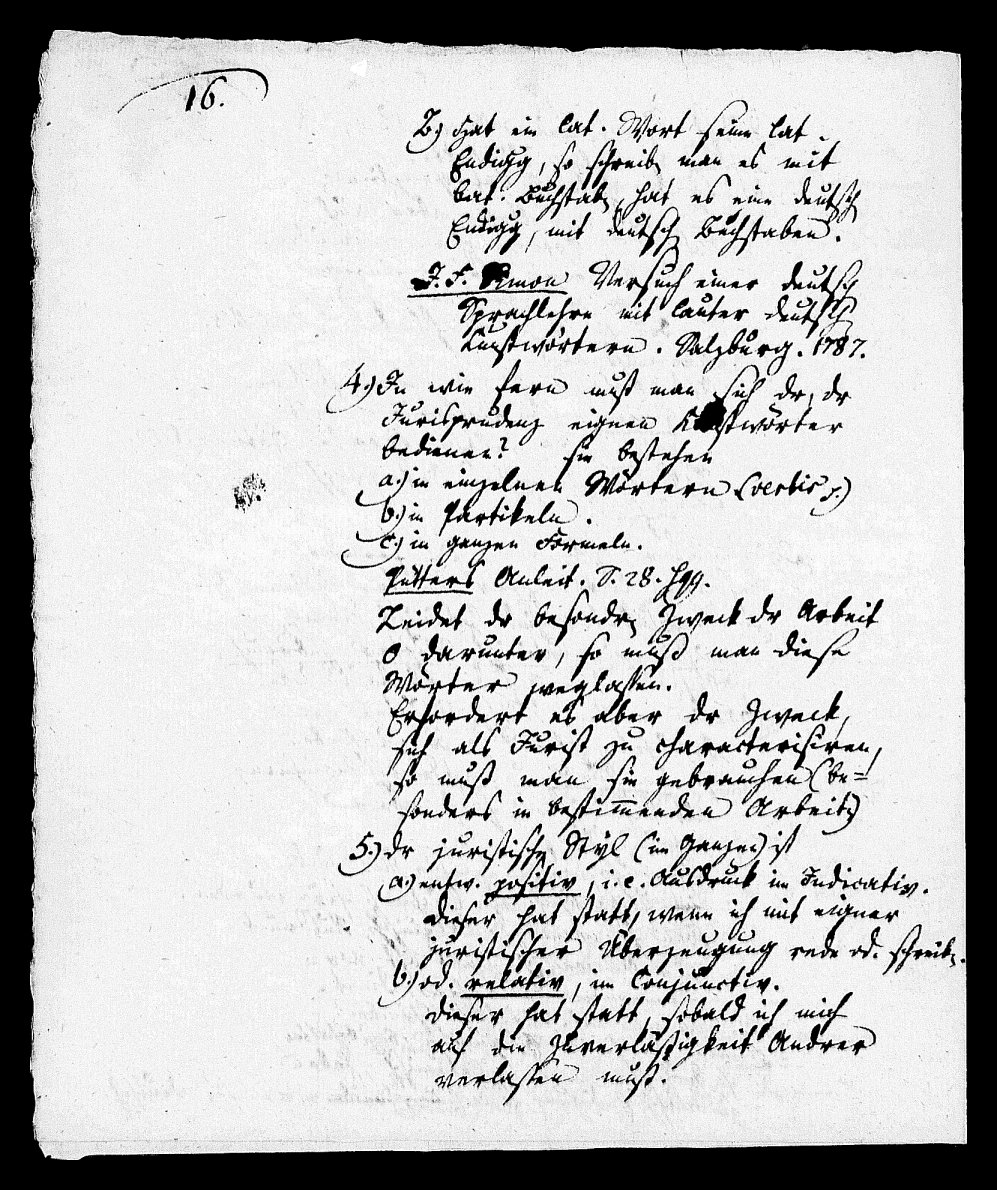 16.
2.) Hat ein lat. Wort seine lat.
Endigg, so schreib man es mit
lat. Buchstab, hat es eine deutsch
Endigg, mit deutsch Buchstaben.
J. F. Simon Versuch einer deutsch
Sprachlehre mit lauter deutsch
Kunstwörtern. Salzburg. 1787.
4.) In wie fern muß man sich dr, dr
Jurisprudenz eignen Kunstwörter
bedienen? sie bestehen
a.) in einzelnen Wörtern (verbis)
b.) in Partikeln.
c.) in ganzen Formeln.
Pütters Anleit. S. 28. sqq.
Leidet dr besondr Zweck dr Arbeit
0 darunter, so muß man diese
Wörter weglassen.
Erfordert es aber dr Zweck,
sich als Jurist zu characterisiren,
so muß man sie gebrauchen (be=
sonders in bestimmenden Arbeit)
5.) Dr juristische Styl (im Ganzen) ist
a.) entw. positiv, i. e. Ausdruck im Indicativ.
Dieser hat statt, wenn ich mit eigner
juristischer Überzeugung rede od. schreib.
b.) od. relativ, im Conjunctiv.
Dieser hat statt, sobald ich mich
auf die Zuverlässigkeit Andrer
verlassen muß.